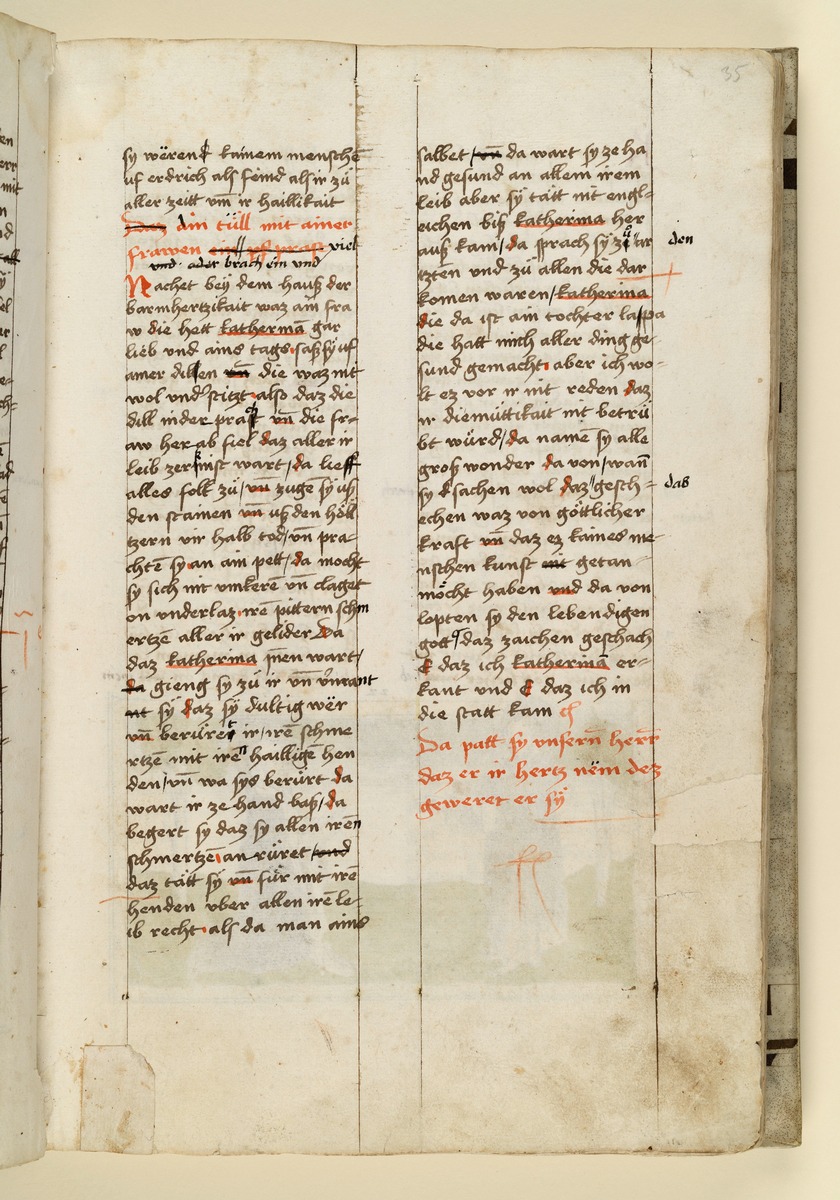 35
sy wëren kainem menschē
uf erdrich als feind als ir zů
aller zeitt vm̄ ir haillikait
Daz ain tüll mit ainer
frawen viel
und oder brach ein vnd
Nachet beÿ dem hauß der
barmhertzikait waz ain fra
w die hett katherinā gar
lieb vnd ains tags saß sÿ uf
ainer dillen vn̄ die waz nit
wol vnd stitzt also daz die
dill in der prast vn̄ die fr-
aw her ab fiel daz aller ir
leib zerknist wart / da lieff
alles folk zů / vn̄ zugen sÿ uß
den stainen vn̄ uß den höll
tzern vir halb tod / vn̄ pra-
chtē sy an ain pett / da mocht
sÿ sich nit vmkerē vn̄ claget
on vnderlaz irē pittern schm
ertzē aller ir gelider Da
daz katherina jnen wart /
da gieng sÿ zů ir vn̄ vermant
nt sÿ daz sÿ dultig wër
vn̄ berüret ir / irē schme
rtzē mit iren hailligē hen
den / vn̄ wa sys berürt da
wart ir ze hand baß / da
begert sÿ daz sÿ allen iren
schmertzē an rüret / vnd
daz tätt sÿ vn̄ für mit irē
henden vber allen irē le-
ib recht als da man ains
salbet / vn̄ da wart sÿ ze ha
nd gesund an allem irem
leib aber sÿ tätt nit engl-
eichen biß katherina her
auß kam / da sprach sÿ zů ar
den
tzten vnd zů allen die dar
komen waren / katherina
die da ist ain tochter lappa
die hatt mich aller ding ge-
sund gemacht aber ich wo-
lt ez vor ir nit reden daz
ir diemüttikait nit betrü
bt würd / da namē sÿ alle
groß wonder da von / wan̄
sÿ sachen wol daz gesch-
das
echen waz von göttlicher
kraft vn̄ daz ez kaines me
nschen kunst nit getan
möcht haben vnd da von
lopten sÿ den lebendigen
gott daz zaichen geschach
E daz ich katherinā er-
kant vnd E daz ich in
die statt kam
Da patt sÿ vnsern̄ herr
daz er ir hertz nëm dez
geweret er sÿ